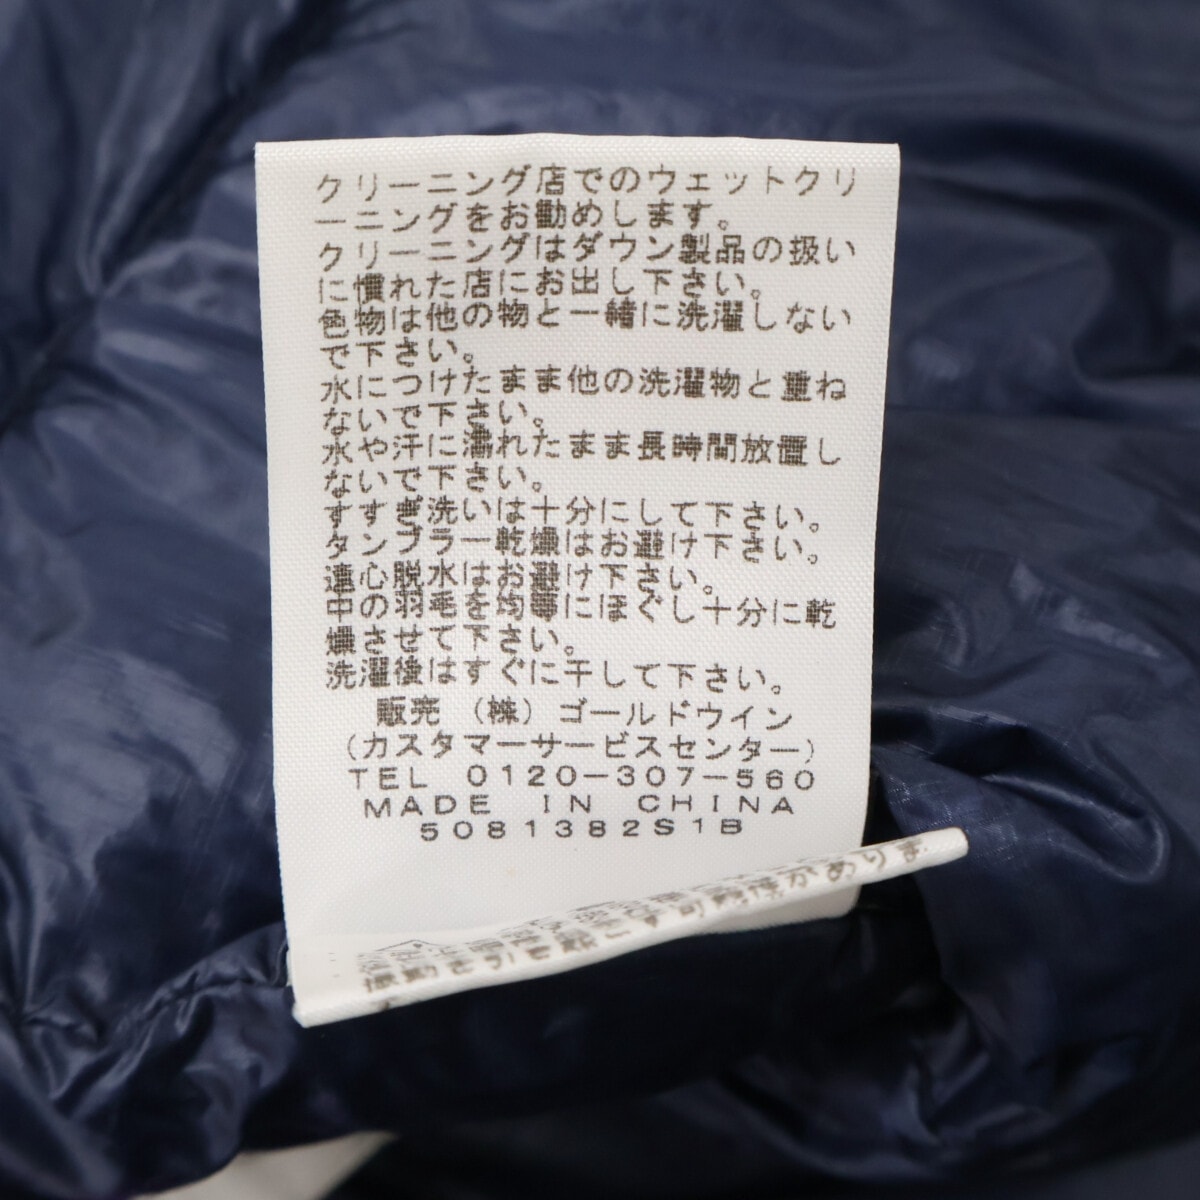 クリーニング店でのウェットクリ
ーニングをお勧めします。
クリーニングはダウン製品の扱い
に慣れた店にお出し下さい。
色物は他の物と一緒に洗濯しない
で下さい。
水につけたまま他の洗濯物と重ね
ないで下さい。
水や汗に濡れたまま長時間放置し
ないで下さい。
すすぎ洗いは十分にして下さい。
タンブラー乾燥はお避け下さい。
遠心脱水はお避け下さい。
中の羽毛を均等にほぐし十分に乾
燥させて下さい。
洗濯後はすぐに干して下さい。
販売 (株) ゴールドウイン
(カスタマーサービスセンター)
TEL 0120-307-560
MADE IN CHINA
5081382S1B
可能性がありま